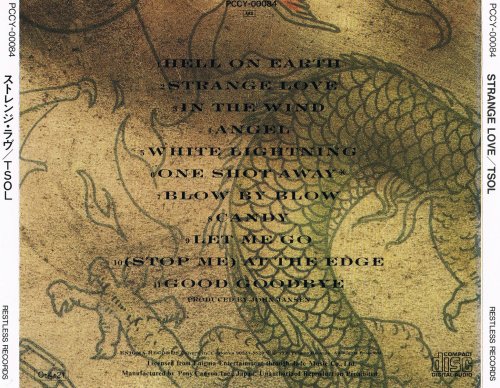 PCCY-00084
ストレンジ・ラヴ/TSOL
RESTLESS RECORDS
PCCY-00084
1 HELL ON EARTH
2 STRANGE LOVE
3 IN THE WIND
4 ANGEL
5 WHITE LIGHTNING
6 ONE SHOT AWAY*
7 BLOW BY BLOW
8 CANDY
9 LET ME GO
10 (STOP ME) AT THE EDGE
11 GOOD GOODBYE
PRODUCED BY JOHN JANSEN
Licensed from Enigma Entertainment through
Manufactured by Pony Canyon Inc., Japan. Unauthorized Reproduction Prohibited
COMPACT
DISC
DIGITAL AUDIO
PCCY-00084
STRANGE LOVE/TSOL
RESTLESS RECORDS